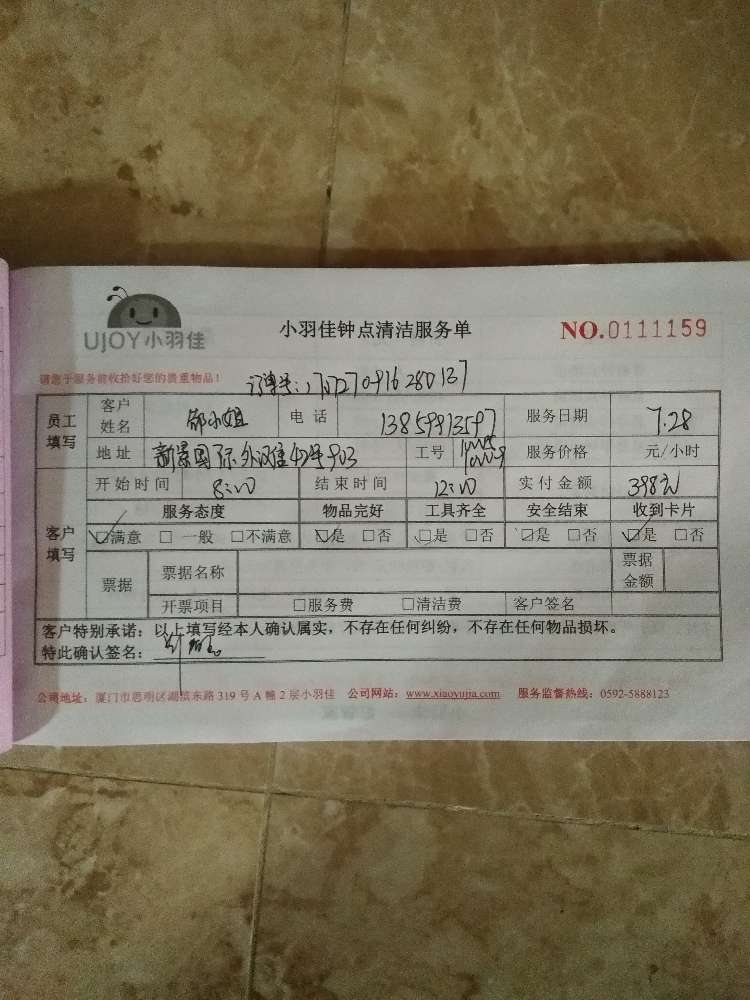 UJOY小羽佳
小羽佳钟点清洁服务单
NO.0111159
请您于服务前收拾好您的贵重物品！
订单号：1707270916280137
员工填写 客户姓名 邹小姐 电话 13859913597 服务日期 7.28
地址 新景国际外滩 903 工号 服务价格 元/小时
开始时间 8:00 结束时间 12:00 实付金额 398元
客户填写 服务态度 物品完好 工具齐全 安全结束 收到卡片
☑满意 □一般 □不满意 ☑是 □否 ☑是 □否 ☑是 □否 ☑是 □否
票据 票据名称 票据金额
开票项目 □服务费 □清洁费 客户签名
客户特别承诺：以上填写经本人确认属实，不存在任何纠纷，不存在任何物品损坏。
特此确认签名：
公司地址：厦门市思明区湖滨东路319号A幢2层小羽佳 公司网站：www.xiaoyujia.com 服务监督热线：0592-5888123